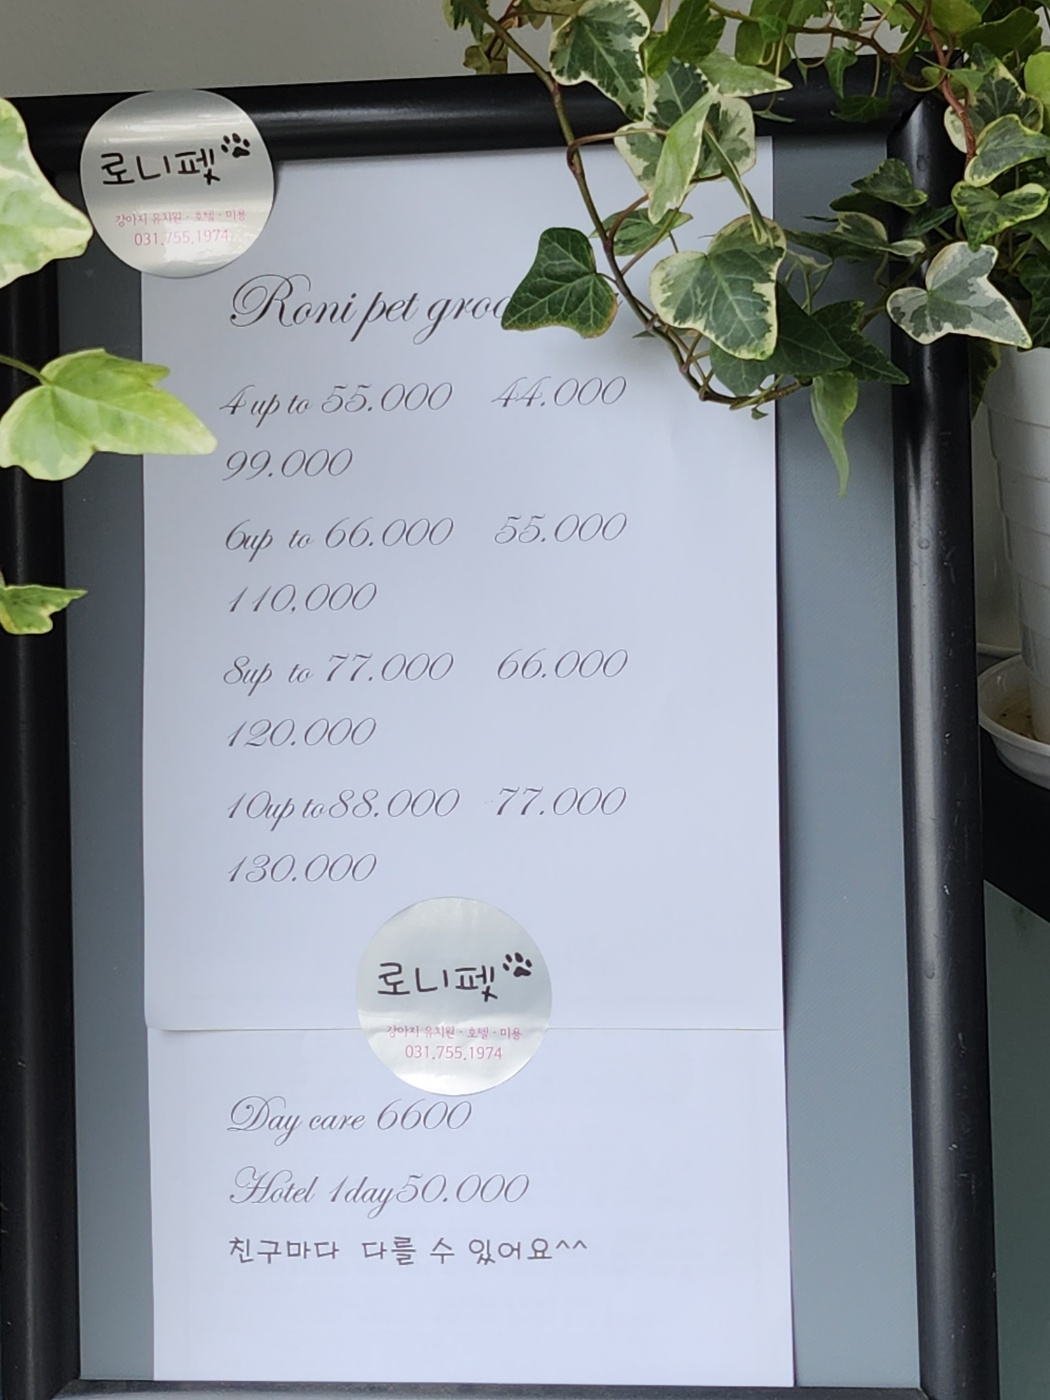 로니펫
강아지 유치원 · 호텔 · 미용
031.755.1974
Roni pet
4up to 55.000 44.000
99.000
6up to 66.000 55.000
110.000
8up to 77.000 66.000
120.000
10up to88.000 77.000
130.000
로니펫
강아지 유치원 · 호텔 · 미용
031.755.1974
Day care 6600
Hotel 1day50.000
친구마다 다를 수 있어요^^